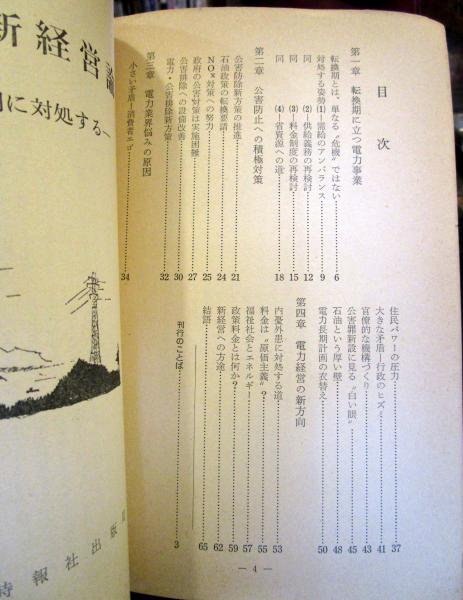 目次
第一章 転換期に立つ電力事業
転換期とは、単なる〝危機〟ではない……6
対処する姿勢(1)―需給のアンバランス……9
同 (2)―供給義務の再検討……12
同 (3)―料金制度の再検討……15
同 (4)―省資源への道……18
第二章 公害防止への積極対策
公害防除新方策の推進……21
石油政策の転換要請……24
NOx対策への努力……25
政府の公害対策は実施困難……27
公害排除への設備改善……30
電力・公害排除新方策……32
第三章 電力業界悩みの原因
小さい矛盾―消費者エゴ……34
住民パワーの圧力……37
大きな矛盾―行政のヒズミ……41
官僚的な機構づくり……43
公害罪新設に見る〝白い眼〟……45
石油という厚い壁……48
電力長期計画の衣替え……50
第四章 電力経営の新方向
内憂外患に対処する道……53
料金は〝原価主義〟?……55
福祉社会とエネルギー……57
政策料金とは何か?……59
新経営への方途……62
結語……65
刊行のことば……3
― 4 ―
新経営論
に対処する―
時報社出版